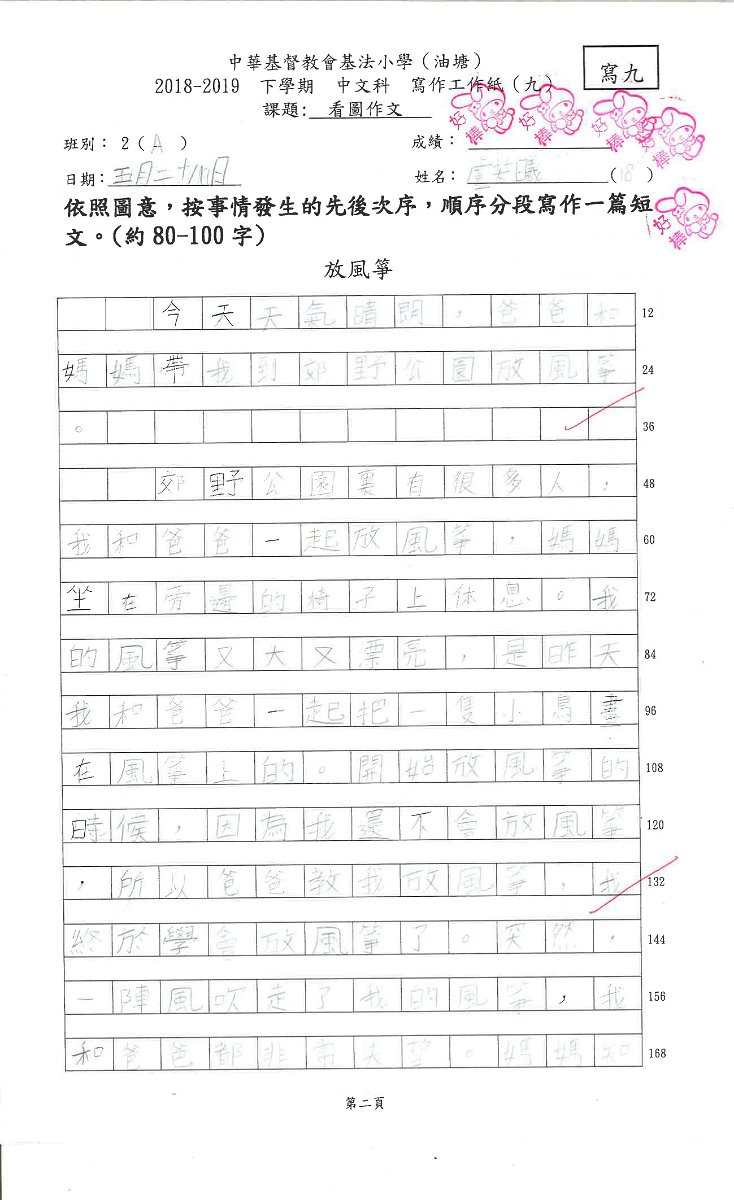 中華基督教會基法小學（油塘）
寫九
2018-2019 下學期 中文科 寫作工作紙（九）
課題: 看圖作文
好棒 好棒 好棒 好棒
班別： 2（A ）
成績：
日期：五月二十八日
姓名： (18)
依照圖意，按事情發生的先後次序，順序分段寫作一篇短
文。（約 80-100 字）
好棒
放風箏
今天天氣晴朗，爸爸和 12
媽媽帶我到郊野公園放風箏 24
。 36
郊野公園裏有很多人， 48
我和爸爸一起放風箏，媽媽 60
坐在旁邊的椅子上休息。我 72
的風箏又大又票亮，是昨天 84
我和爸爸一起把一隻小鳥畫 96
在風箏上的。開始放風箏的 108
時候，因為我還不會放風箏 120
，所以爸爸教我放風箏，我 132
終於學會放風箏了。突然， 144
一陣風吹走了我的風箏，我 156
和爸爸都非常失望。媽媽知 168
第二頁